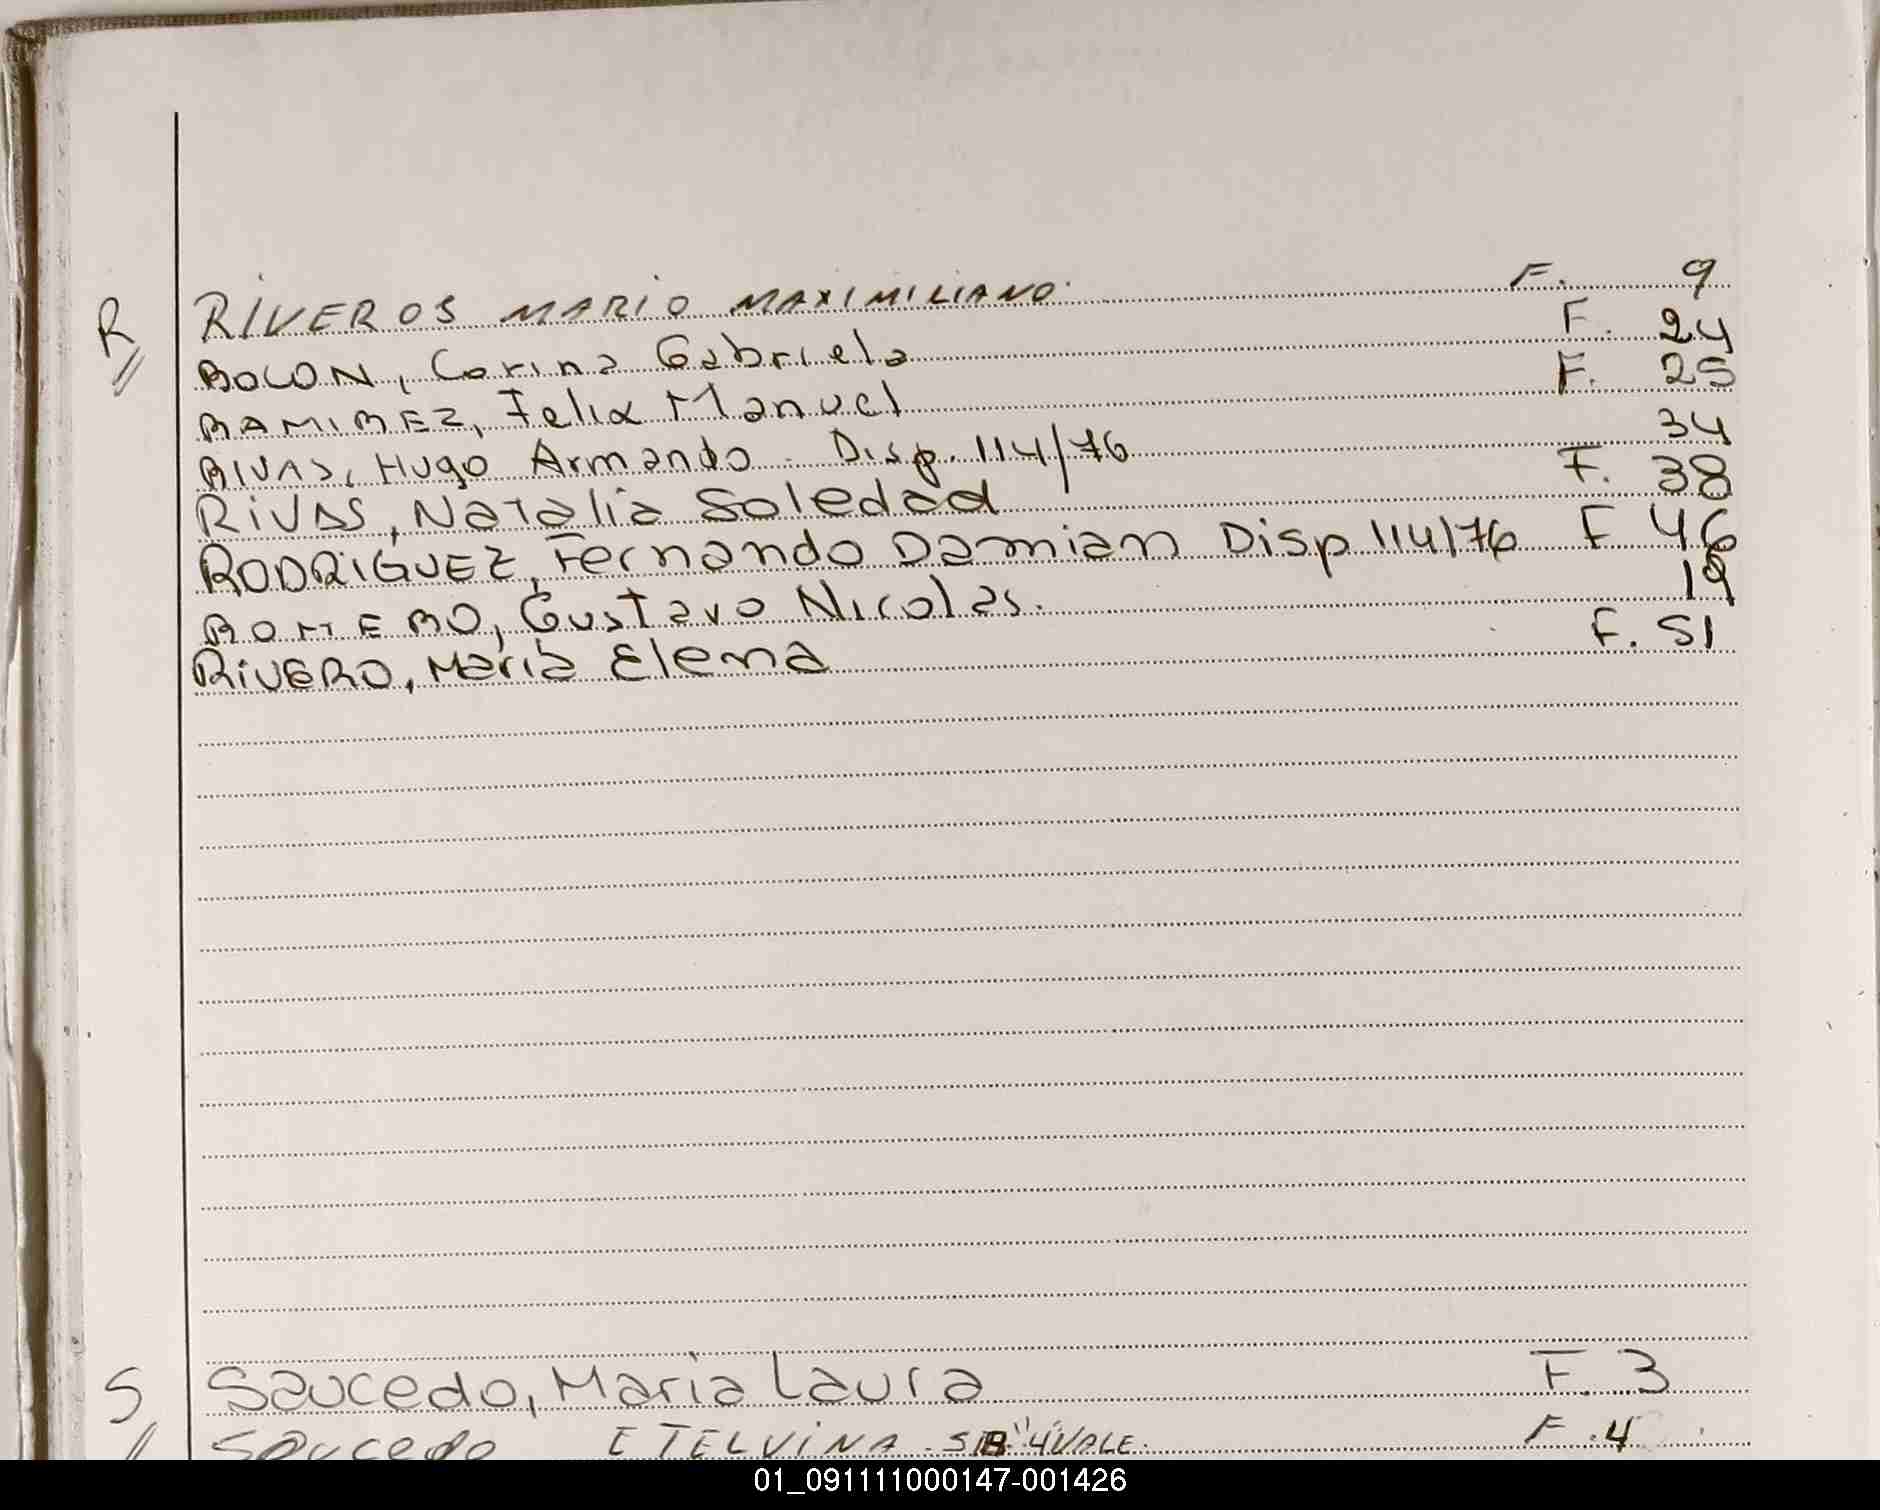 R RIVEROS MARIO MAXIMILIANO. F. 9
ROLON, Corina Gabriela F. 24
RAMIREZ, Felix Manuel F. 25
RIVAS, Hugo Armando - Disp. 114/76 34
RIVAS, Natalia Soledad F. 38
RODRIGUEZ, Fernando Damian Disp 114/76 F 46
ROMERO, Gustavo Nicolas. 19
RIVERO, Maria Elena F. 51
S Saucedo, Maria Laura F. 3
Saucedo ETELVINA F. 4
01_091111000147-001426